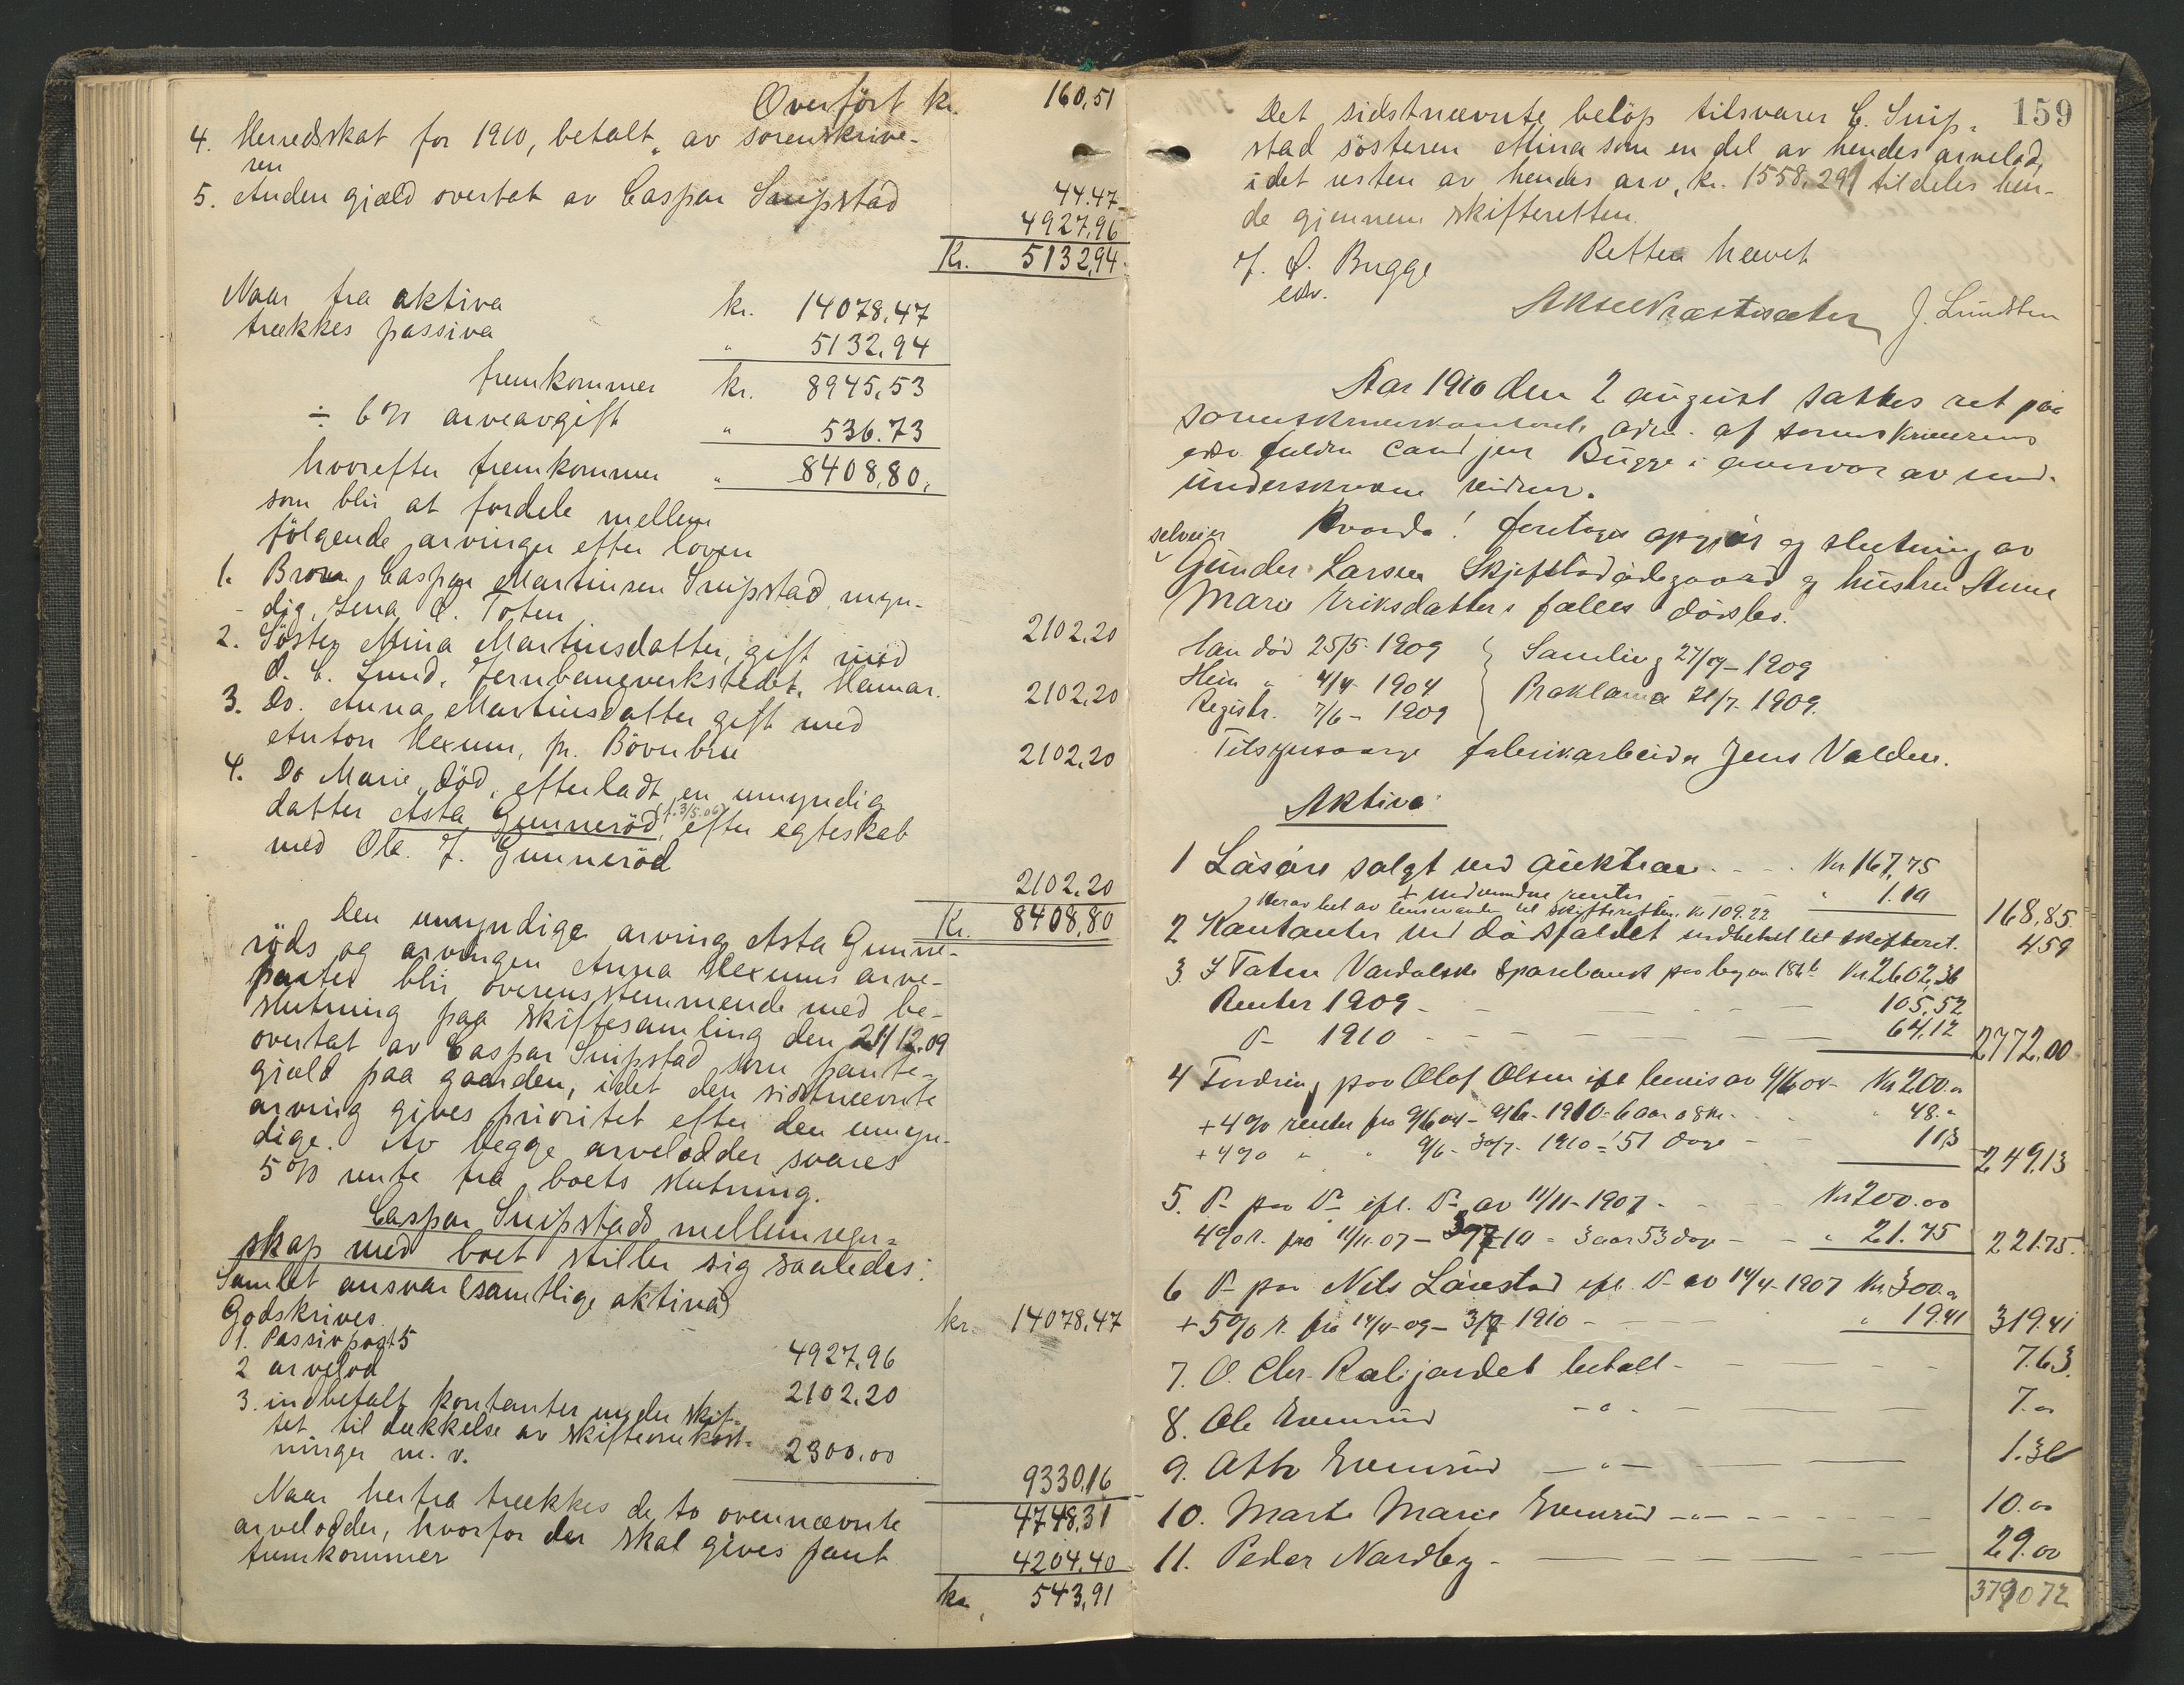 Overført kr. 160,51
4. Herredskat for 1910, betalt av sorenskrive-
ren 44.47
5. Anden gjæld overtat av Caspar Snipstad 4927,96
Kr. 5132,94
Naar fra aktiva kr. 14078,47
trækkes passiva " 5132.94
fremkommer kr. 8945,53
÷ 6% arveavgift " 536.73
hvorefter fremkommer " 8408,80,
som blir at fordele mellem
følgende arvinger efter loven
1. Broren Caspar Martinsen Snipstad, myn-
dig, Lena Ø. Toten 2102.20
2. Søster Mina Martinsdatter, gift med
O. C. Lund, Jernbaneverkstedet, Hamar. 2102,20
3. Do. Anna Martinsdatter gift med
Anton Hexum, pr. Bøverbru 2102,20
4. Do Marie, død, efterladt en umyndig
datter Asta Gunnerød (f. 3/5.06), efter egteskab
med Ole J. Gunnerød 2102.20
Kr. 8408,80
Den umyndige arving Asta Gunne-
røds og arvingen Anna Hexums arve-
parter blir overensstemmende med be-
slutning paa skiftesamling den 21/12.09
overtat av Caspar Snipstad som pante-
gjæld paa gaarden, idet den sidstnævnte
arving gives prioritet efter den umyn-
dige. Av begge arvelodder svares
5% rente fra boets slutning.
Caspar Snipstads mellemregn-
skap med boet stiller sig saaledes:
Samlet ansvar (samtlige aktiva) kr. 14078.47
Godskrives
1. Passivpost 5 4927,96
2 arvelod 2102.20
3. indbetalt kontanter under skif-
tet til dækkelse av skifteomkost-
ninger m. v. 2300.00
9330,16
4748,31
Naar herfra trækkes de to ovennævnte
arvelodder, hvorfor der skal gives pant 4204.40
fremkommer kr. 543,91
159
Det sidstnævnte beløp tilsvarer C. Snip-
stad søsteren Mina som en del av hendes arvelod,
idet resten av hendes arv, kr. 1558,29, tildeles hen-
de gjennem skifteretten.
Retten hævet
J. L. Bugge
edv.
Aksel Præstesæter J. Lundsten
Aar 1910 den 2 august sattes ret paa
sorenskriverkontoret, adm. af sorenskriverens
edv. fuldm. cand jur Bugge i overvær av und.
underskrevne vidner.
Hvorda! foretoges opgjør og slutning av
selveier
Gunder Larsen Skjefstadødegaard og hustru Anne
Marie Eriksdatters fælles dødsbo.
Han død 25/5-1909 Samling 27/9-1909
Hun " 4/4 1904 Proklama 21/7 1909.
Registr. 7/6-1909
Tilsynsværge fabrikarbeider Jens Valden.
Aktiva
1 Løsøre solgt ved auktion - - - Kr 167,75
+ indvundne renter " 1.10 168,85
Herav bet av til skifteretten kr 109.22
2 Kontanter ved dødsfaldet indbetalt til skifteret. 459
3. I Toten Vardalske Sparebank paa bog no 186 Kr 2602,36
Renter 1909 - - - 105,52
Do 1910 - - - 64,12 2772.00
4 Fordring paa Olof Olsen ifl. bevis av 9/6 04 - Kr 200.00
+ 4% renter fra 9/6 04 - 9/6 - 1910 = 6 aar a 8 kr. - " 48.00
+ 4% " " 9/6 - 30/7 - 1910 = 51 dage - 1,13 249,13
5. Do paa Do ifl. Do av 11/11-1907 - - - Kr 200.00
4% r. fra 11/11.07 - 10 - 3 aar 53 dage - - " 21.75 221.75
6 Do paa Nils Lønstad ifl. Do av 14/4-1907 Kr. 300.00
+ 5% r. fra 14/4-09 - 1910 - - " 19.41 319.41
7. O. Chr. betalt - - 7.63.
8. Ole Evenrud - " - 7.00
9. Otto Evenrud - " - 1.36
10. Marte Marie Evenrud - " - 10.00
11. Peder Nordby - 29.00
379072